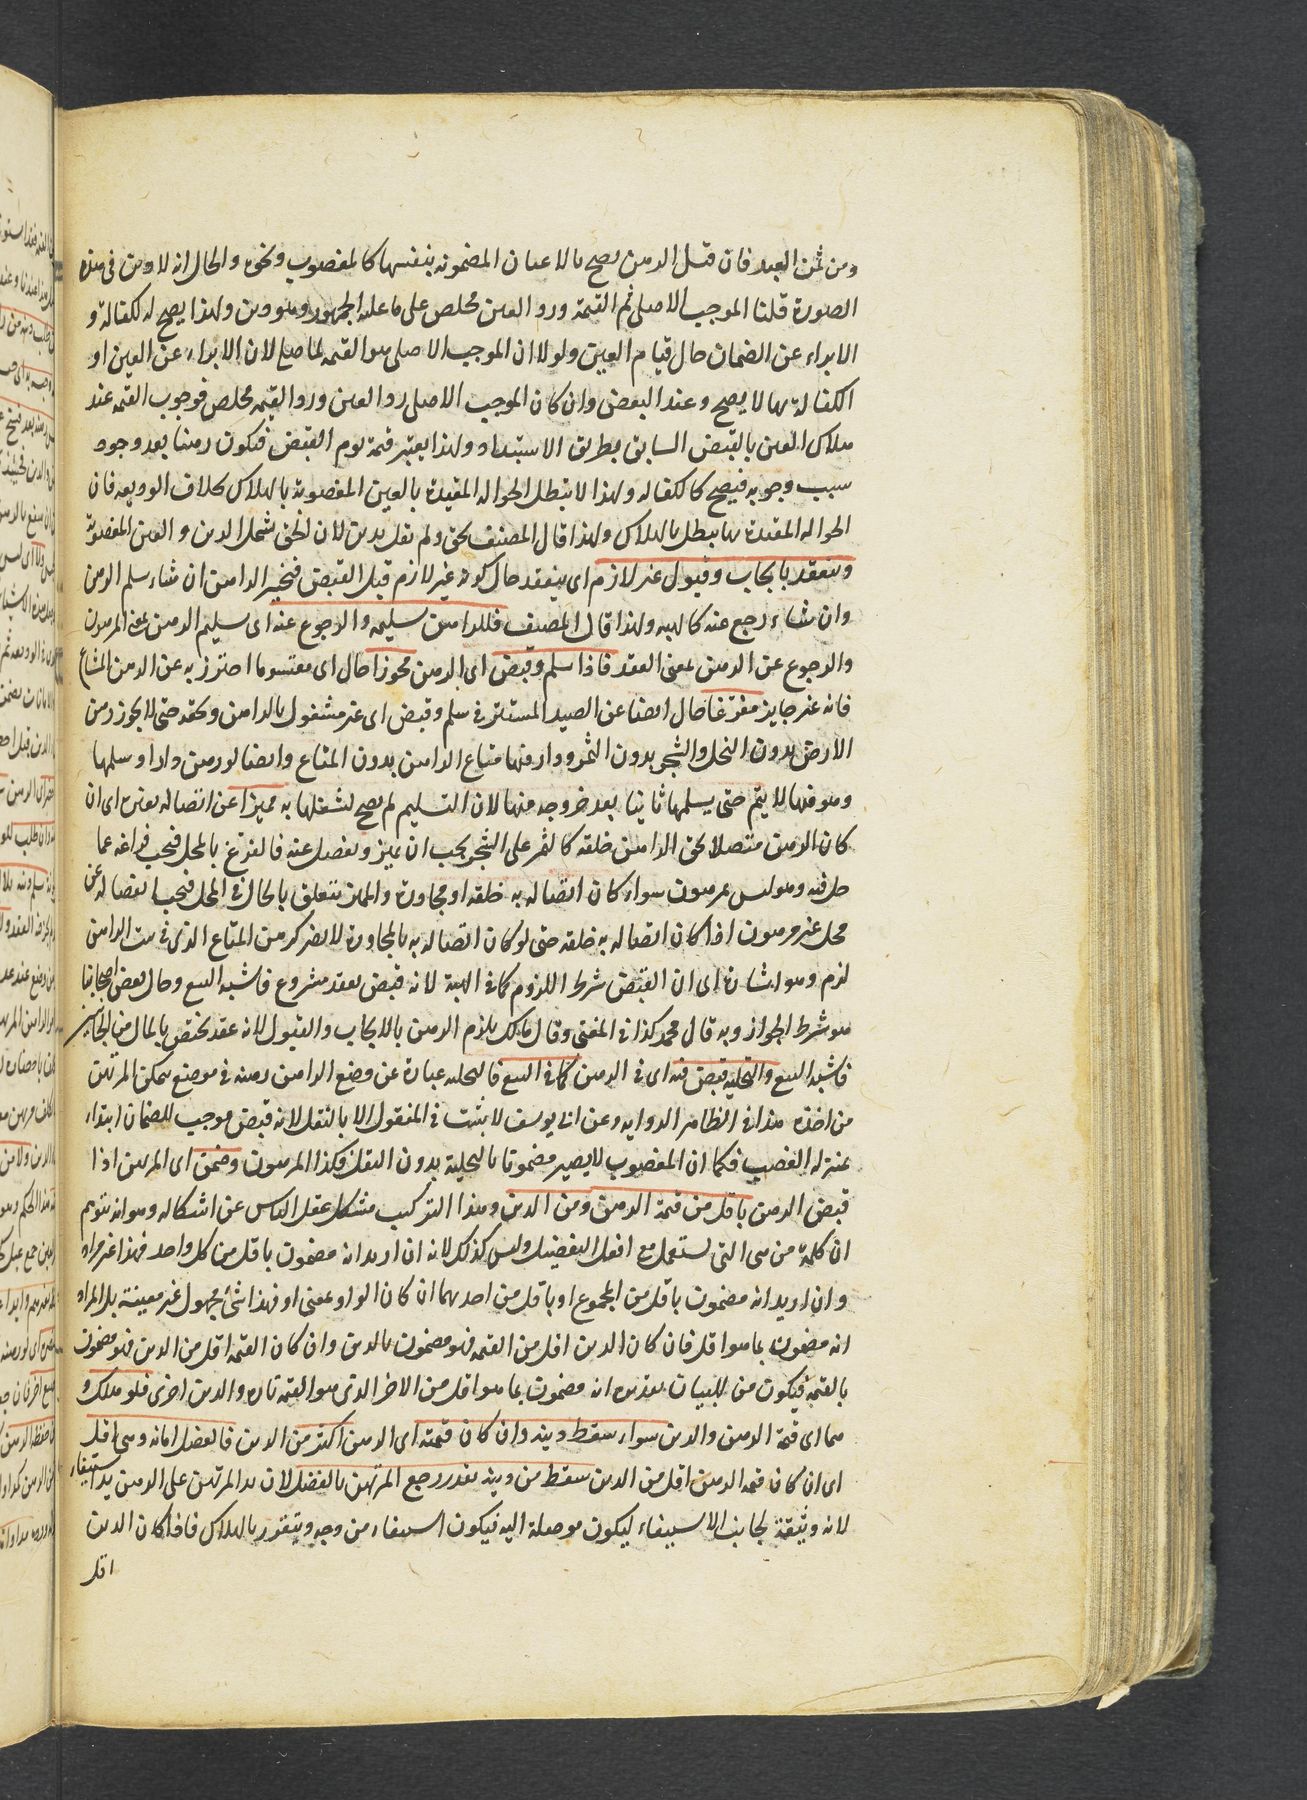 ومن ثمن العبد فان قيل الرهن يصح بالاعيان المضمونة بنفسها كالمغصوب ونحوه والحال انه لا دين في هذه
الصورة قلنا الموجب الاصلي ثم القيمة ورد العين مخلص على ما عليه الجمهور وهو دين ولهذا يصح له الكفالة و
الابراء عن الضمان حال قيام العين ولولا ان الموجب الاصلي هو القيمة لما صح لان الابراء عن العين او
الكفالة بها لا يصح وعند البعض وان كان الموجب الاصلي رد العين ورد القيمة مخلص فوجوب القيمة عند
هلاك العين بالقبض السابق بطريق الاستناد ولهذا يعتبر قيمة يوم القبض فيكون رهنا بعد وجود
سبب وجوبه فيصح كالكفالة ولهذا لا تبطل الحوالة المقيدة بالعين المغصوبة بالهلاك بخلاف الوديعة فان
الحوالة المقيدة بها تبطل بالهلاك ولهذا قال المصنف بحق ولم يقل بدين لان الحق يشمل الدين والعين المغصوبة
وينعقد بايجاب وقبول غير لازم اي ينعقد حال كونه غير لازم قبل القبض فيخير الراهن ان شاء سلم الرهن
وان شاء رجع عنه كالهبة ولهذا قال المصنف فللراهن تسليمه والرجوع عنه اي تسليم الرهن بمعنى المرهون
والرجوع عن الرهن بمعنى العقد فاذا سلم وقبض اي الرهن محوزا حال اي مقسوما احترز به عن الرهن المشاع
فانه غير جايز مفرغا حال ايضا عن الضمير المستتر في سلم وقبض اي غير مشغول بالراهن وبحقه حتى لا يجوز رهن
الارض بدون النخل والشجر بدون الثمر ودار فيها متاع الراهن بدون المتاع وايضا لو رهن دارا وسلمها
وهو فيها لا يتم حتى يسلمها ثانيا بعد خروجه منها لان التسليم لم يصح لشغلها به مميزا عن اتصاله بغيره اي ان
كان الرهن متصلا بحق الراهن خلقة كالثمر على الشجر يجب ان يميز ويفصل عنه فالمفرغ بالمحل فيجب فراغه عما
حل فيه وهو ليس بمرهون سواء كان اتصاله به خلقة او مجاورة والمميز يتعلق بالحال في المحل فيجب انفصاله عن
محل غير مرهون اذا كان اتصاله به خلقة حتى لو كان اتصاله به بالمجاورة لا يضر كرهن المتاع الذي في بيت الراهن
لزم وهو اشارة الى ان القبض شرط اللزوم كما في الهبة لانه قبض بعقد مشروع فاشبه البيع وقال بعض اصحابنا
هو شرط الجواز وبه قال محمد كذا في المغني وقال مالك يلزم الرهن بالايجاب والقبول لانه عقد يختص بالمال من الجانبين
فاشبه البيع والتخلية قبض فيه اي في الرهن كما في البيع فالتخلية عبارة عن وضع الراهن رهنه في موضع يمكن المرتهن
من اخذه هذا في الظاهر الرواية وعن ابي يوسف لا يثبت في المنقول الا بالنقل لانه قبض موجب للضمان ابتداء
بمنزلة الغصب فكما ان المغصوب لا يصير مضمونا بالتخلية بدون النقل فكذا المرهون وضمن اي المرتهن اذا
قبض الرهن باقل من قيمة الرهن ومن الدين وهذا التركيب مشكل غفل الناس عن اشكاله وهو انه يتوهم
ان كلمة من هي التي تستعمل مع افعل التفضيل وليس كذلك لانه ان اريد انه مضمون باقل من كل واحد فهذا غير مراد
وان اريد انه مضمون باقل من المجموع او باقل من احدهما ان كان الواو بمعنى او فهذا شيء مجهول غير معينة بل المراد
انه مضمون بما هو اقل فان كان الدين اقل من القيمة فهو مضمون بالدين وان كان القيمة اقل من الدين فهو مضمون
بالقيمة فيكون من للبيان تقديره انه مضمون بما هو اقل من الاخر الذي هو القيمة تارة والدين اخرى فلو هلك و
هما اي قيمة الرهن والدين سواء سقط دينه وان كان قيمته اي الرهن اكثر من الدين فالفضل امانة وفي اقل
اي ان كان قيمة الرهن اقل من الدين سقط من دينه بقدره ورجع المرتهن بالفضل لان يد المرتهن على الرهن يد استيفاء
لانه وثيقة لجانب الاستيفاء ليكون موصلة اليه فيكون استيفاء من وجه ويتقرر بالهلاك فاذا كان الدين
اقل